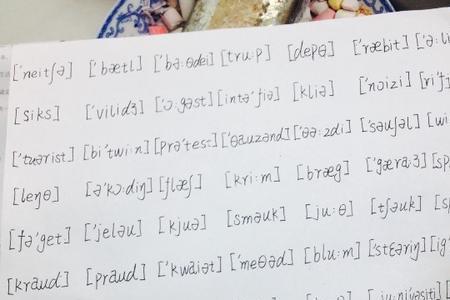 ['neitʃə] ['bætl] ['bə:θdei] [tru:p] [depθ] ['ræbit]
[siks] ['vilidʒ] ['ɔ:gəst] [intə'fiə] [kliə] ['nɔizi]
['tuərist] [bi'twi:n] [prə'test] ['θauzənd] ['θə:zdi] ['səuʃəl]
[leŋθ] [ə'kɔ:diŋ] [flæʃ] [kri:m] [bræg] ['gæra:ʒ]
[fə'get] ['jeləu] [kjuə] [sməuk] [ju:θ] [tʃəuk]
[kraud] [praud] ['kwaiət] ['meθəd] [blu:m]